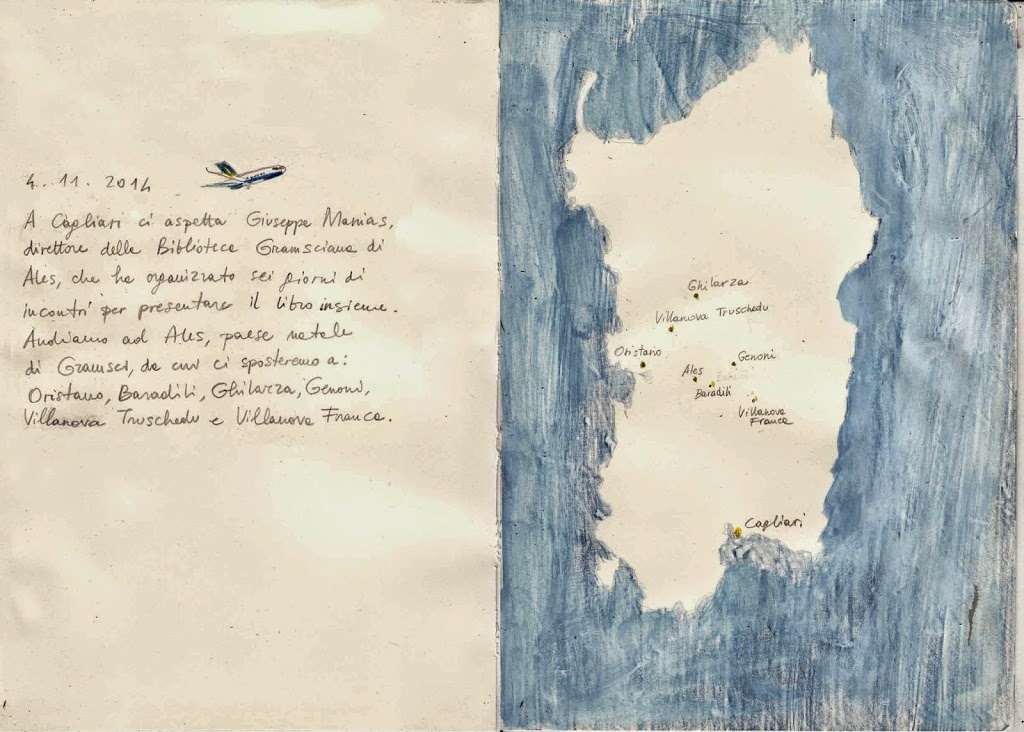 4. 11. 2014
A Cagliari ci aspetta Giuseppe Manias,
direttore della Biblioteca Gramsciana di
Ales, che ha organizzato sei giorni di
incontri per presentare il libro insieme.
Andiamo ad Ales, paese natale
di Gramsci, da cui ci sposteremo a:
Oristano, Baradili, Ghilarza, Genoni,
Villanova Truschedu e Villanova Franca.
Ghilarza
Villanova Truschedu
Oristano
Genoni
Ales
Baradili
Villanova
Franca
Cagliari